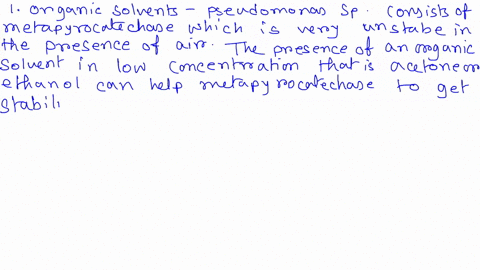 1. Organic solvents - pseudomonas Sp. Consists of
metapyrocatechase which is very unstabe in
the presence of air. The presence of an organic
Solvent in low concentration that is acetone or
ethanol can help metapyrocatechase to get
stabili